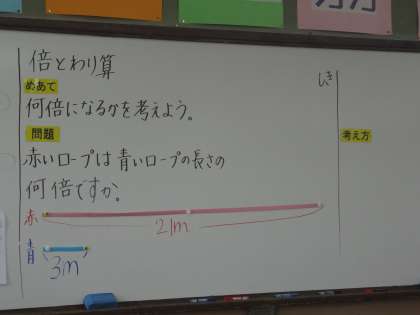 倍とわり算
めあて
何倍になるかを考えよう。
問題
赤いロープは青いロープの長さの
何倍ですか。
赤
21m
青
3m
しき
考え方